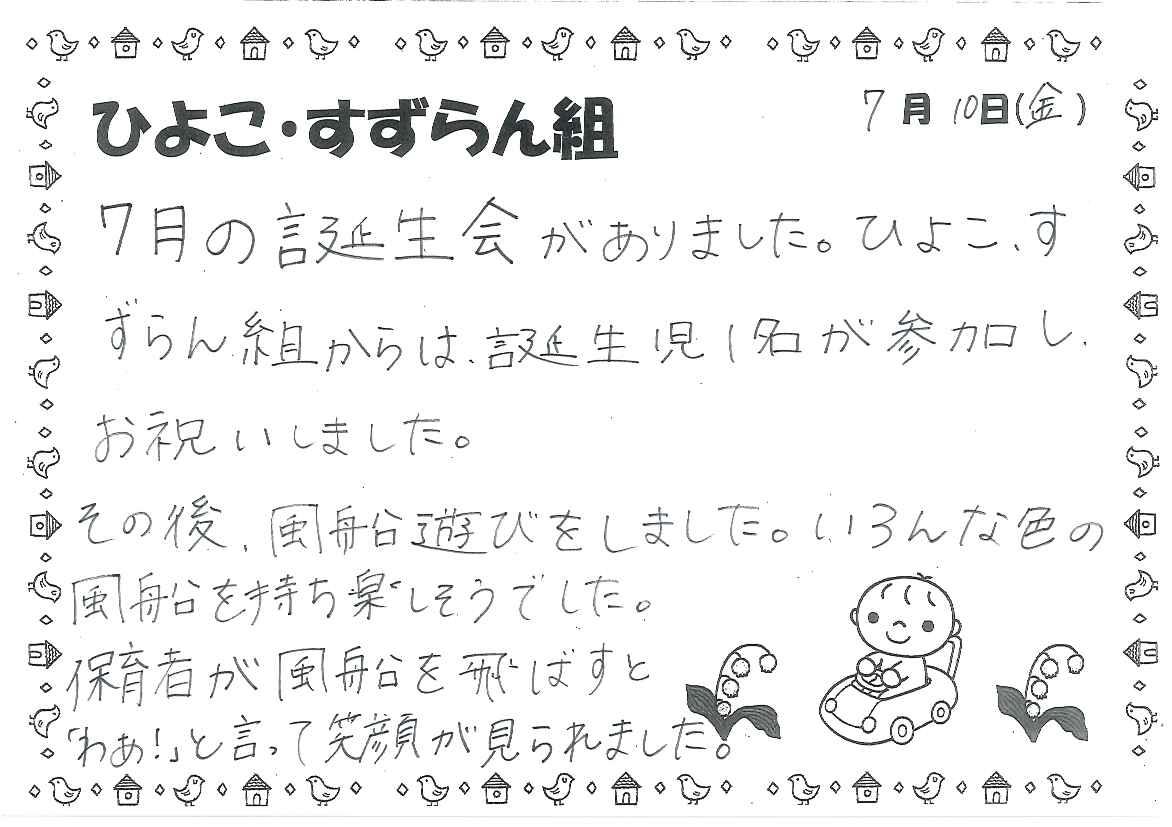 ひよこ・すずらん組
7月10日(金)
7月の誕生会がありました。ひよこ、す
ずらん組からは、誕生児1名が参加し、
お祝いしました。
その後、風船遊びをしました。いろんな色の
風船を持ち楽しそうでした。
保育者が風船を飛ばすと
「わぁ!」と言って笑顔が見られました。